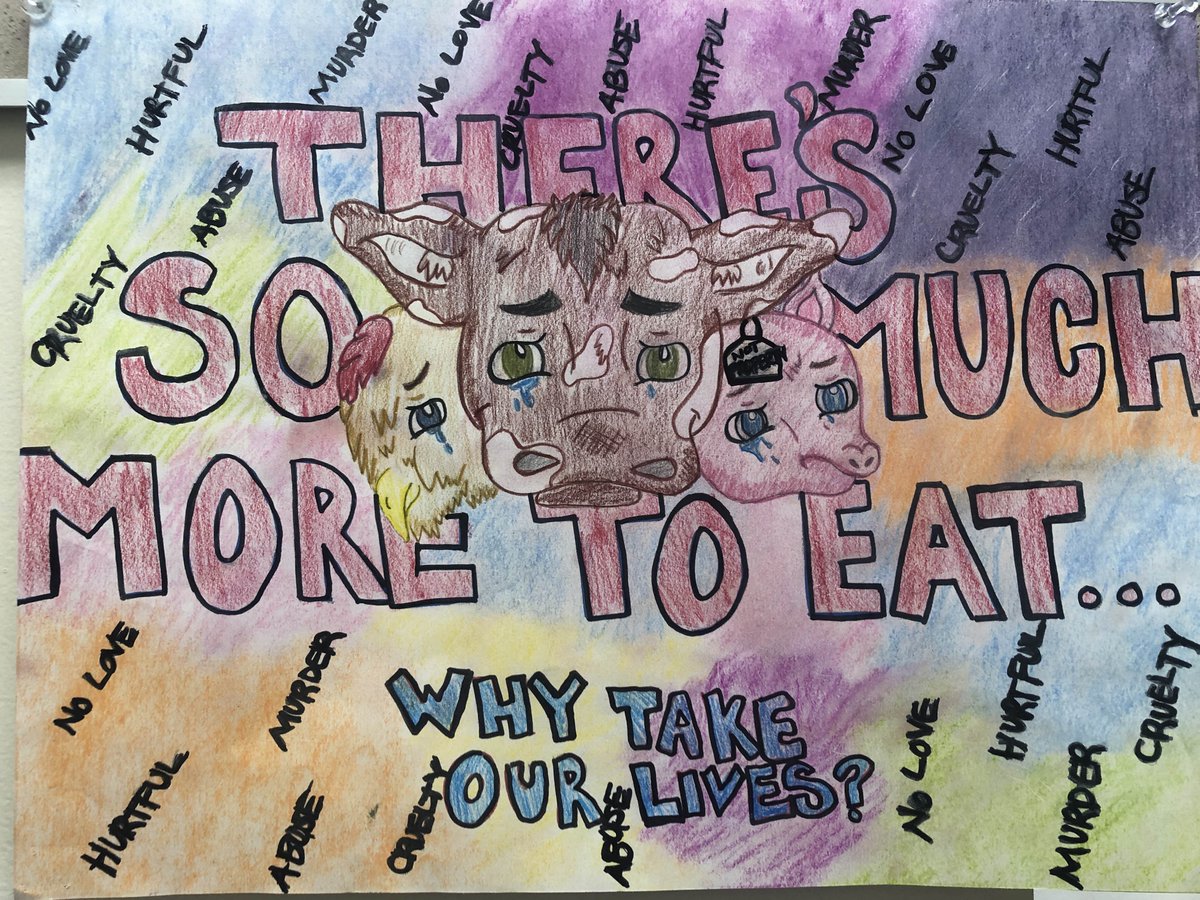 NO LOVE
HURTFUL
MURDER
NO LOVE
CRUELTY
ABUSE
HURTFUL
MURDER
NO LOVE
HURTFUL
CRUELTY
ABUSE
ABUSE
CRUELTY
THERE'S
SO MUCH
MORE TO EAT...
NOT
NO LOVE
MURDER
HURTFUL
ABUSE
CRUELTY
WHY TAKE
OUR LIVES?
ABUSE
NO LOVE
HURTFUL
MURDER
CRUELTY